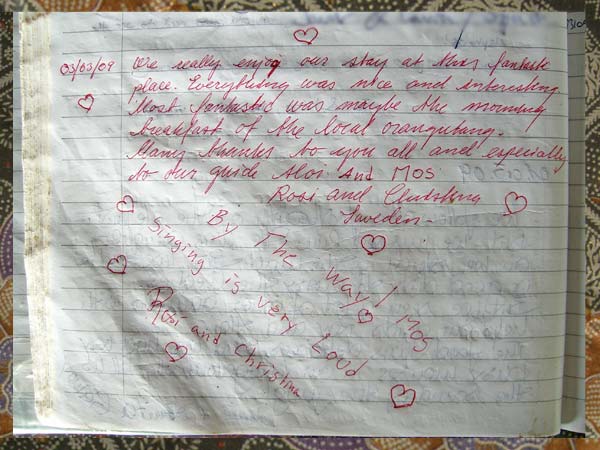 03/03/09 We really enjoy our stay at this fantastic
place. Everything was nice and interesting
Most fantastic was maybe the morning
breakfast of the local orangutang.
Many thanks to you all and especially
to our guide Aloi And MOS
Rosi and
Sweden.
By The Way / MOS
singing is very Loud
Rosi and Christina